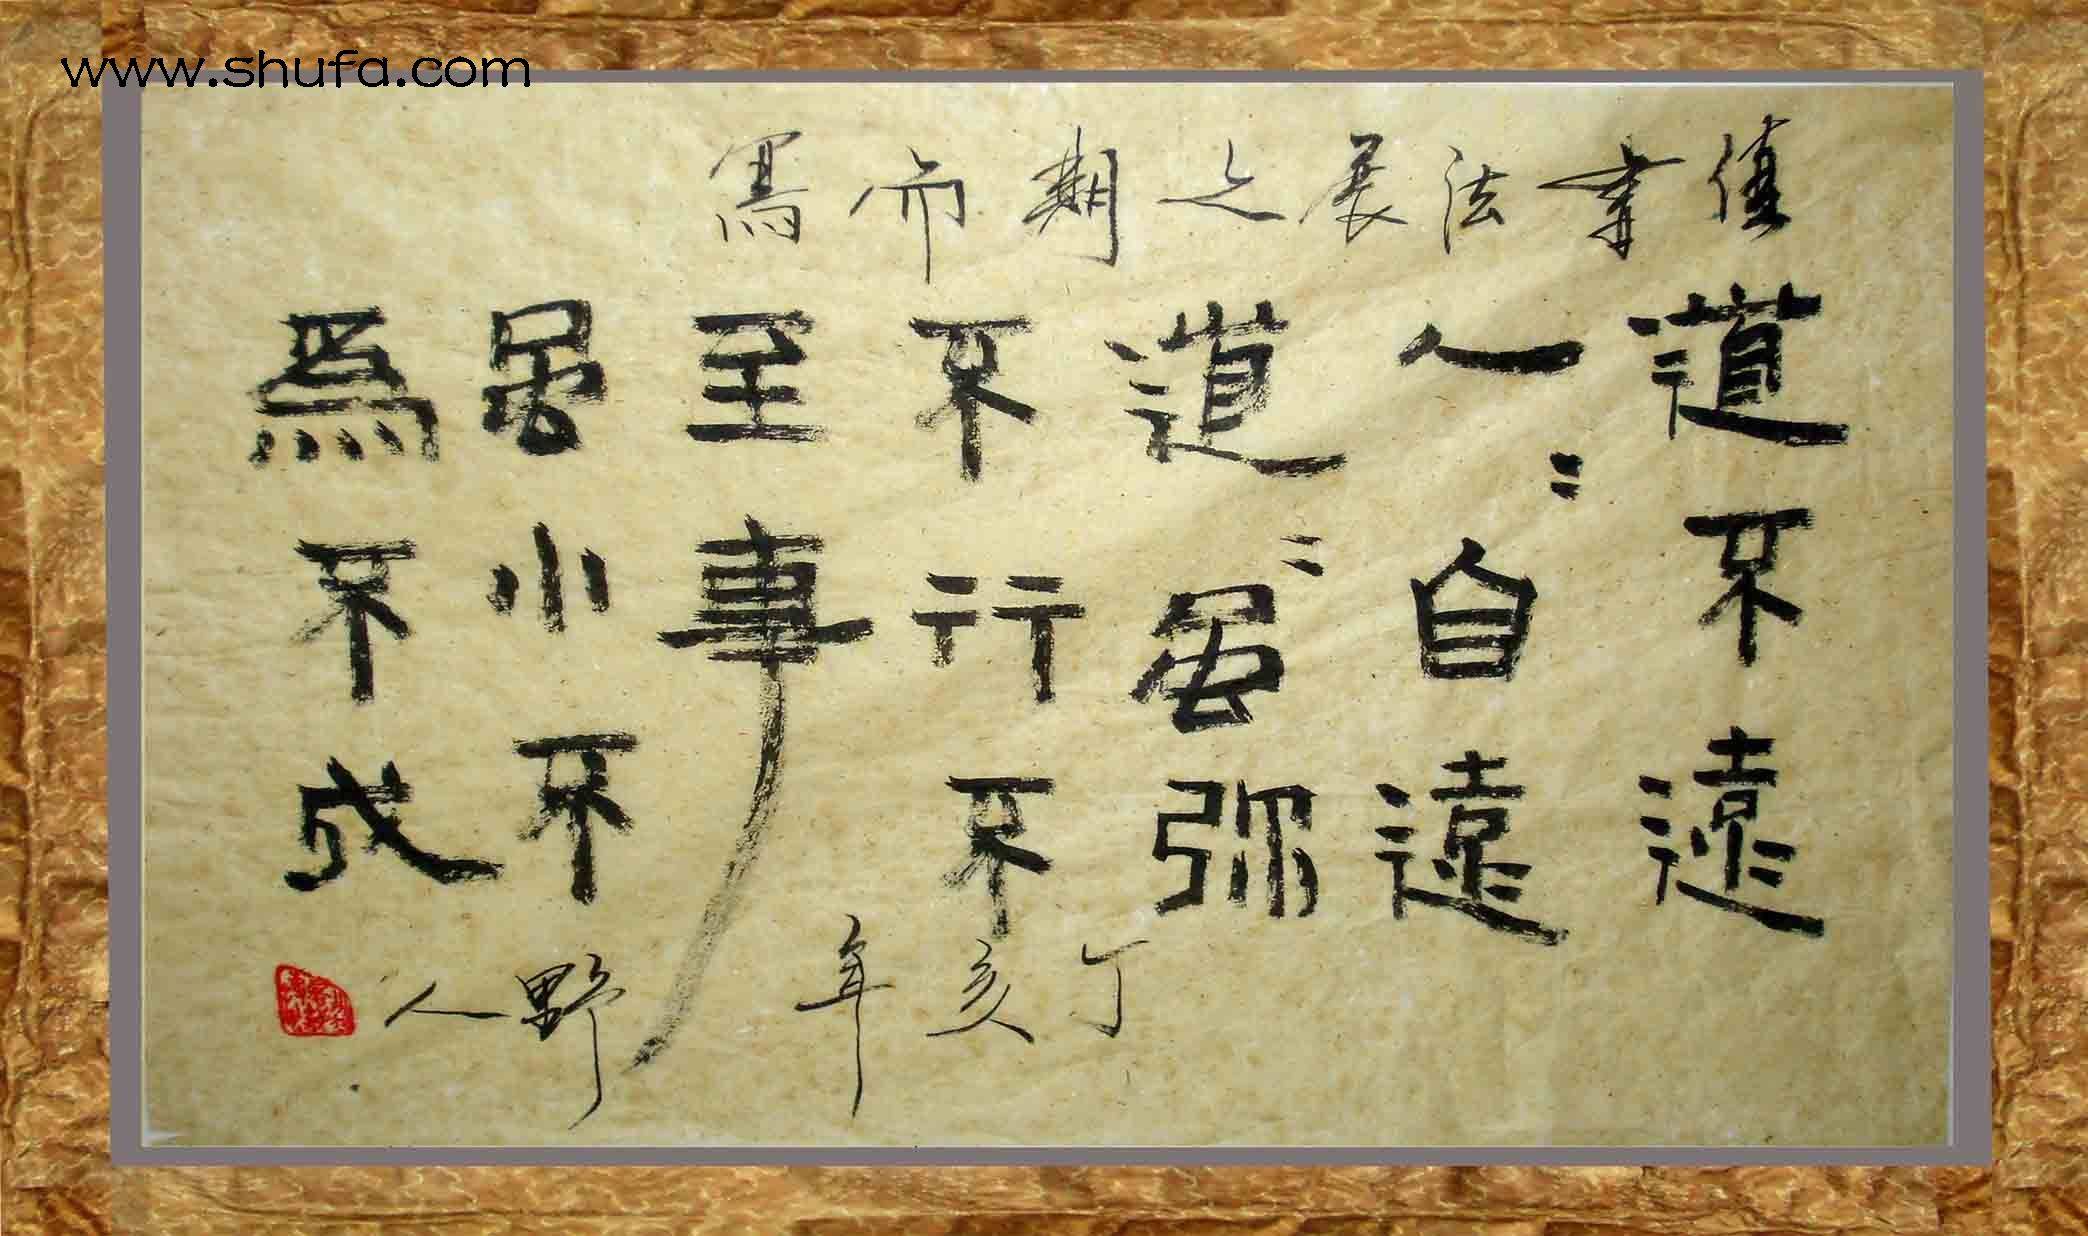 www.shufa.com
值書法展之期而寫
道不遠
人〻自遠
道〻虽弥
不行不
至事
虽小不
為不成
丁亥年
野人